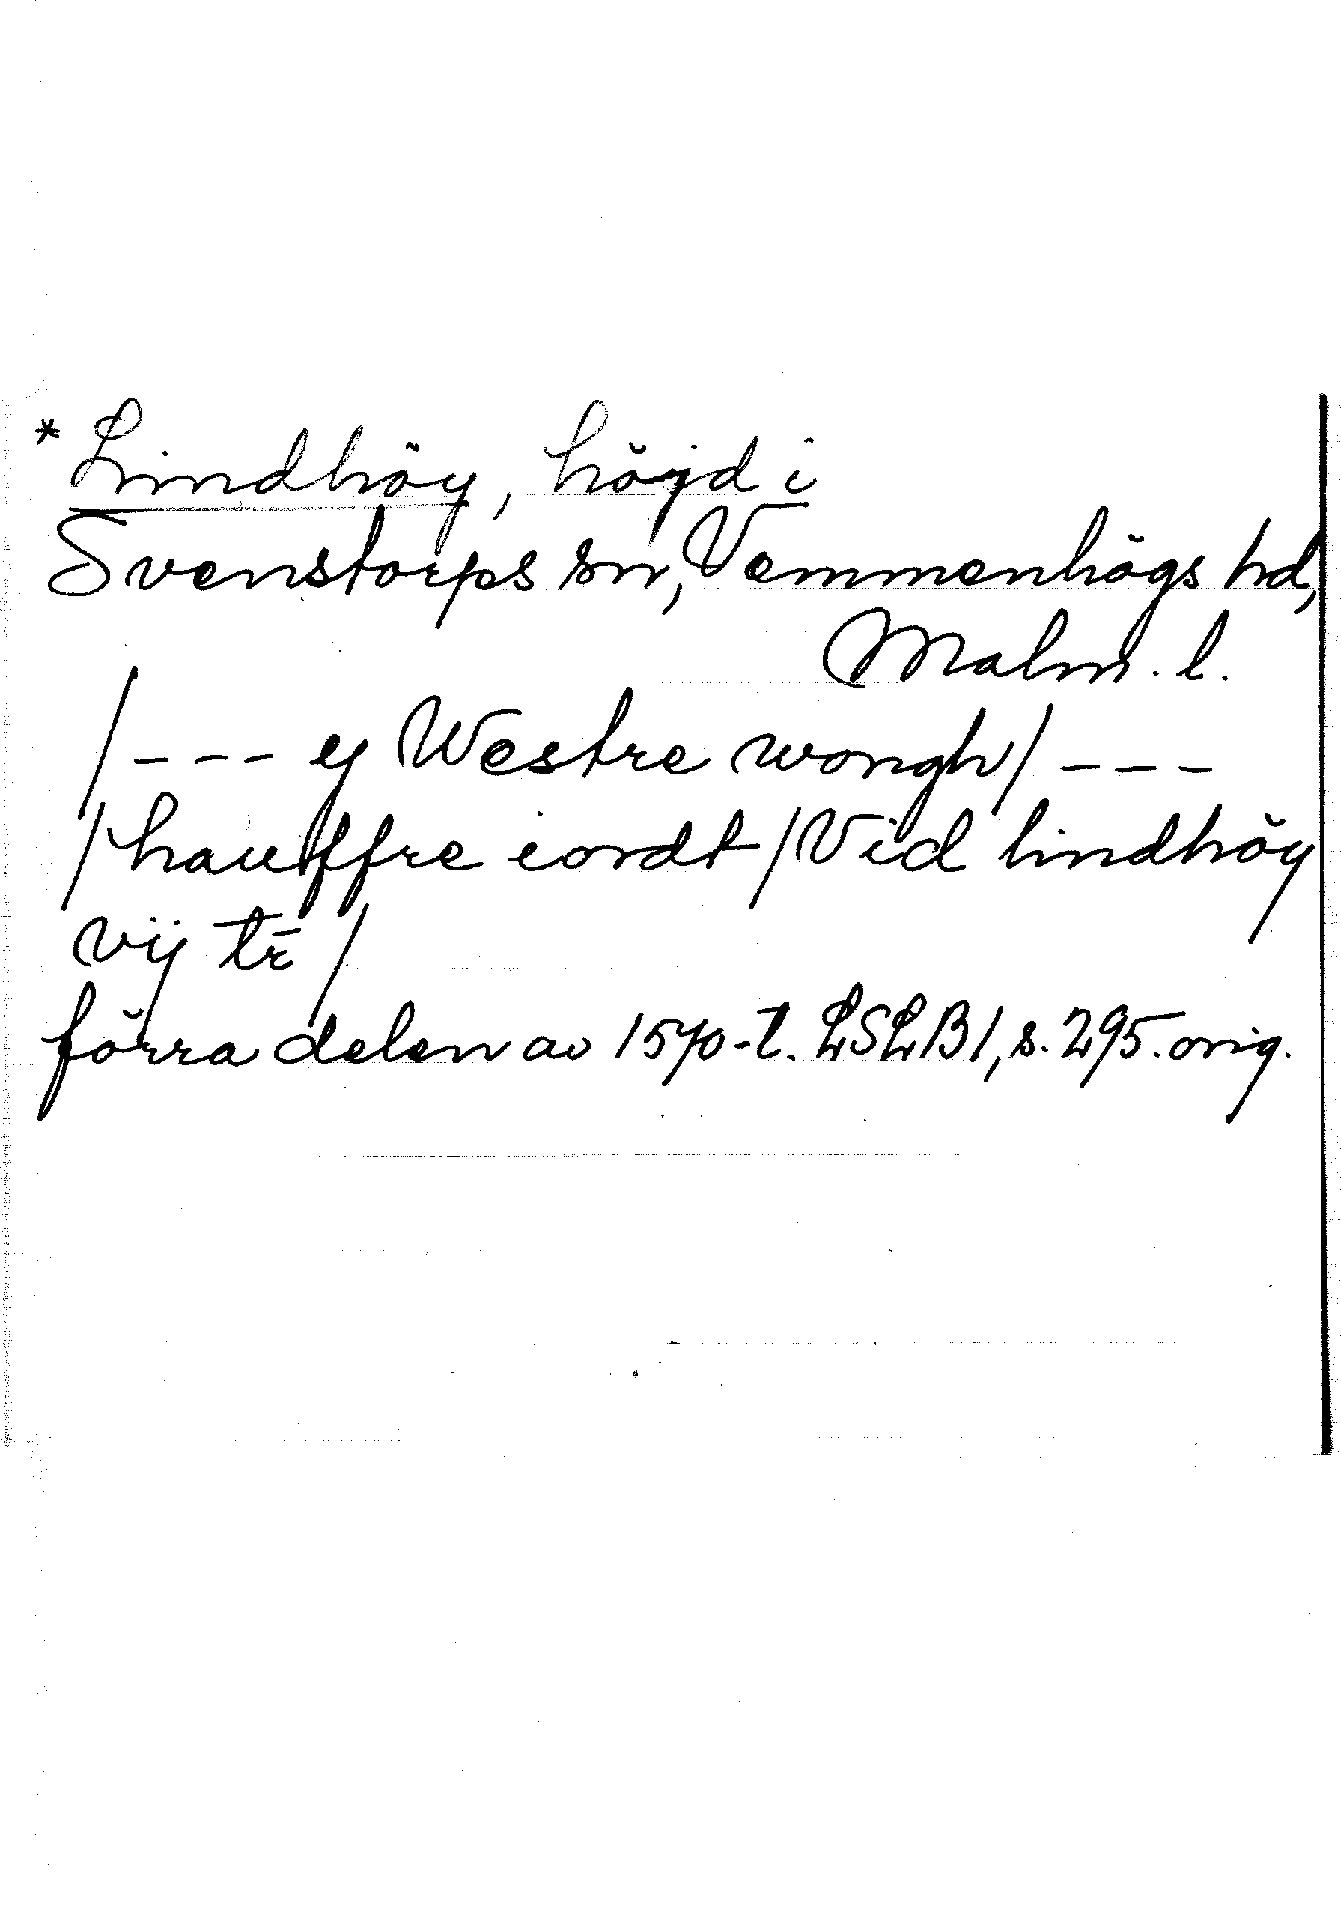 *Lindhöy, höjd i
Svenstorps sn, Vemmenhögs hd,
Malm. l.
/--- ej Westre wongh/ ---
/hauffre iordt/Vid lindhöy
vij tr̄/
förra delen av 1570-t. LSLB1, s. 295. orig.